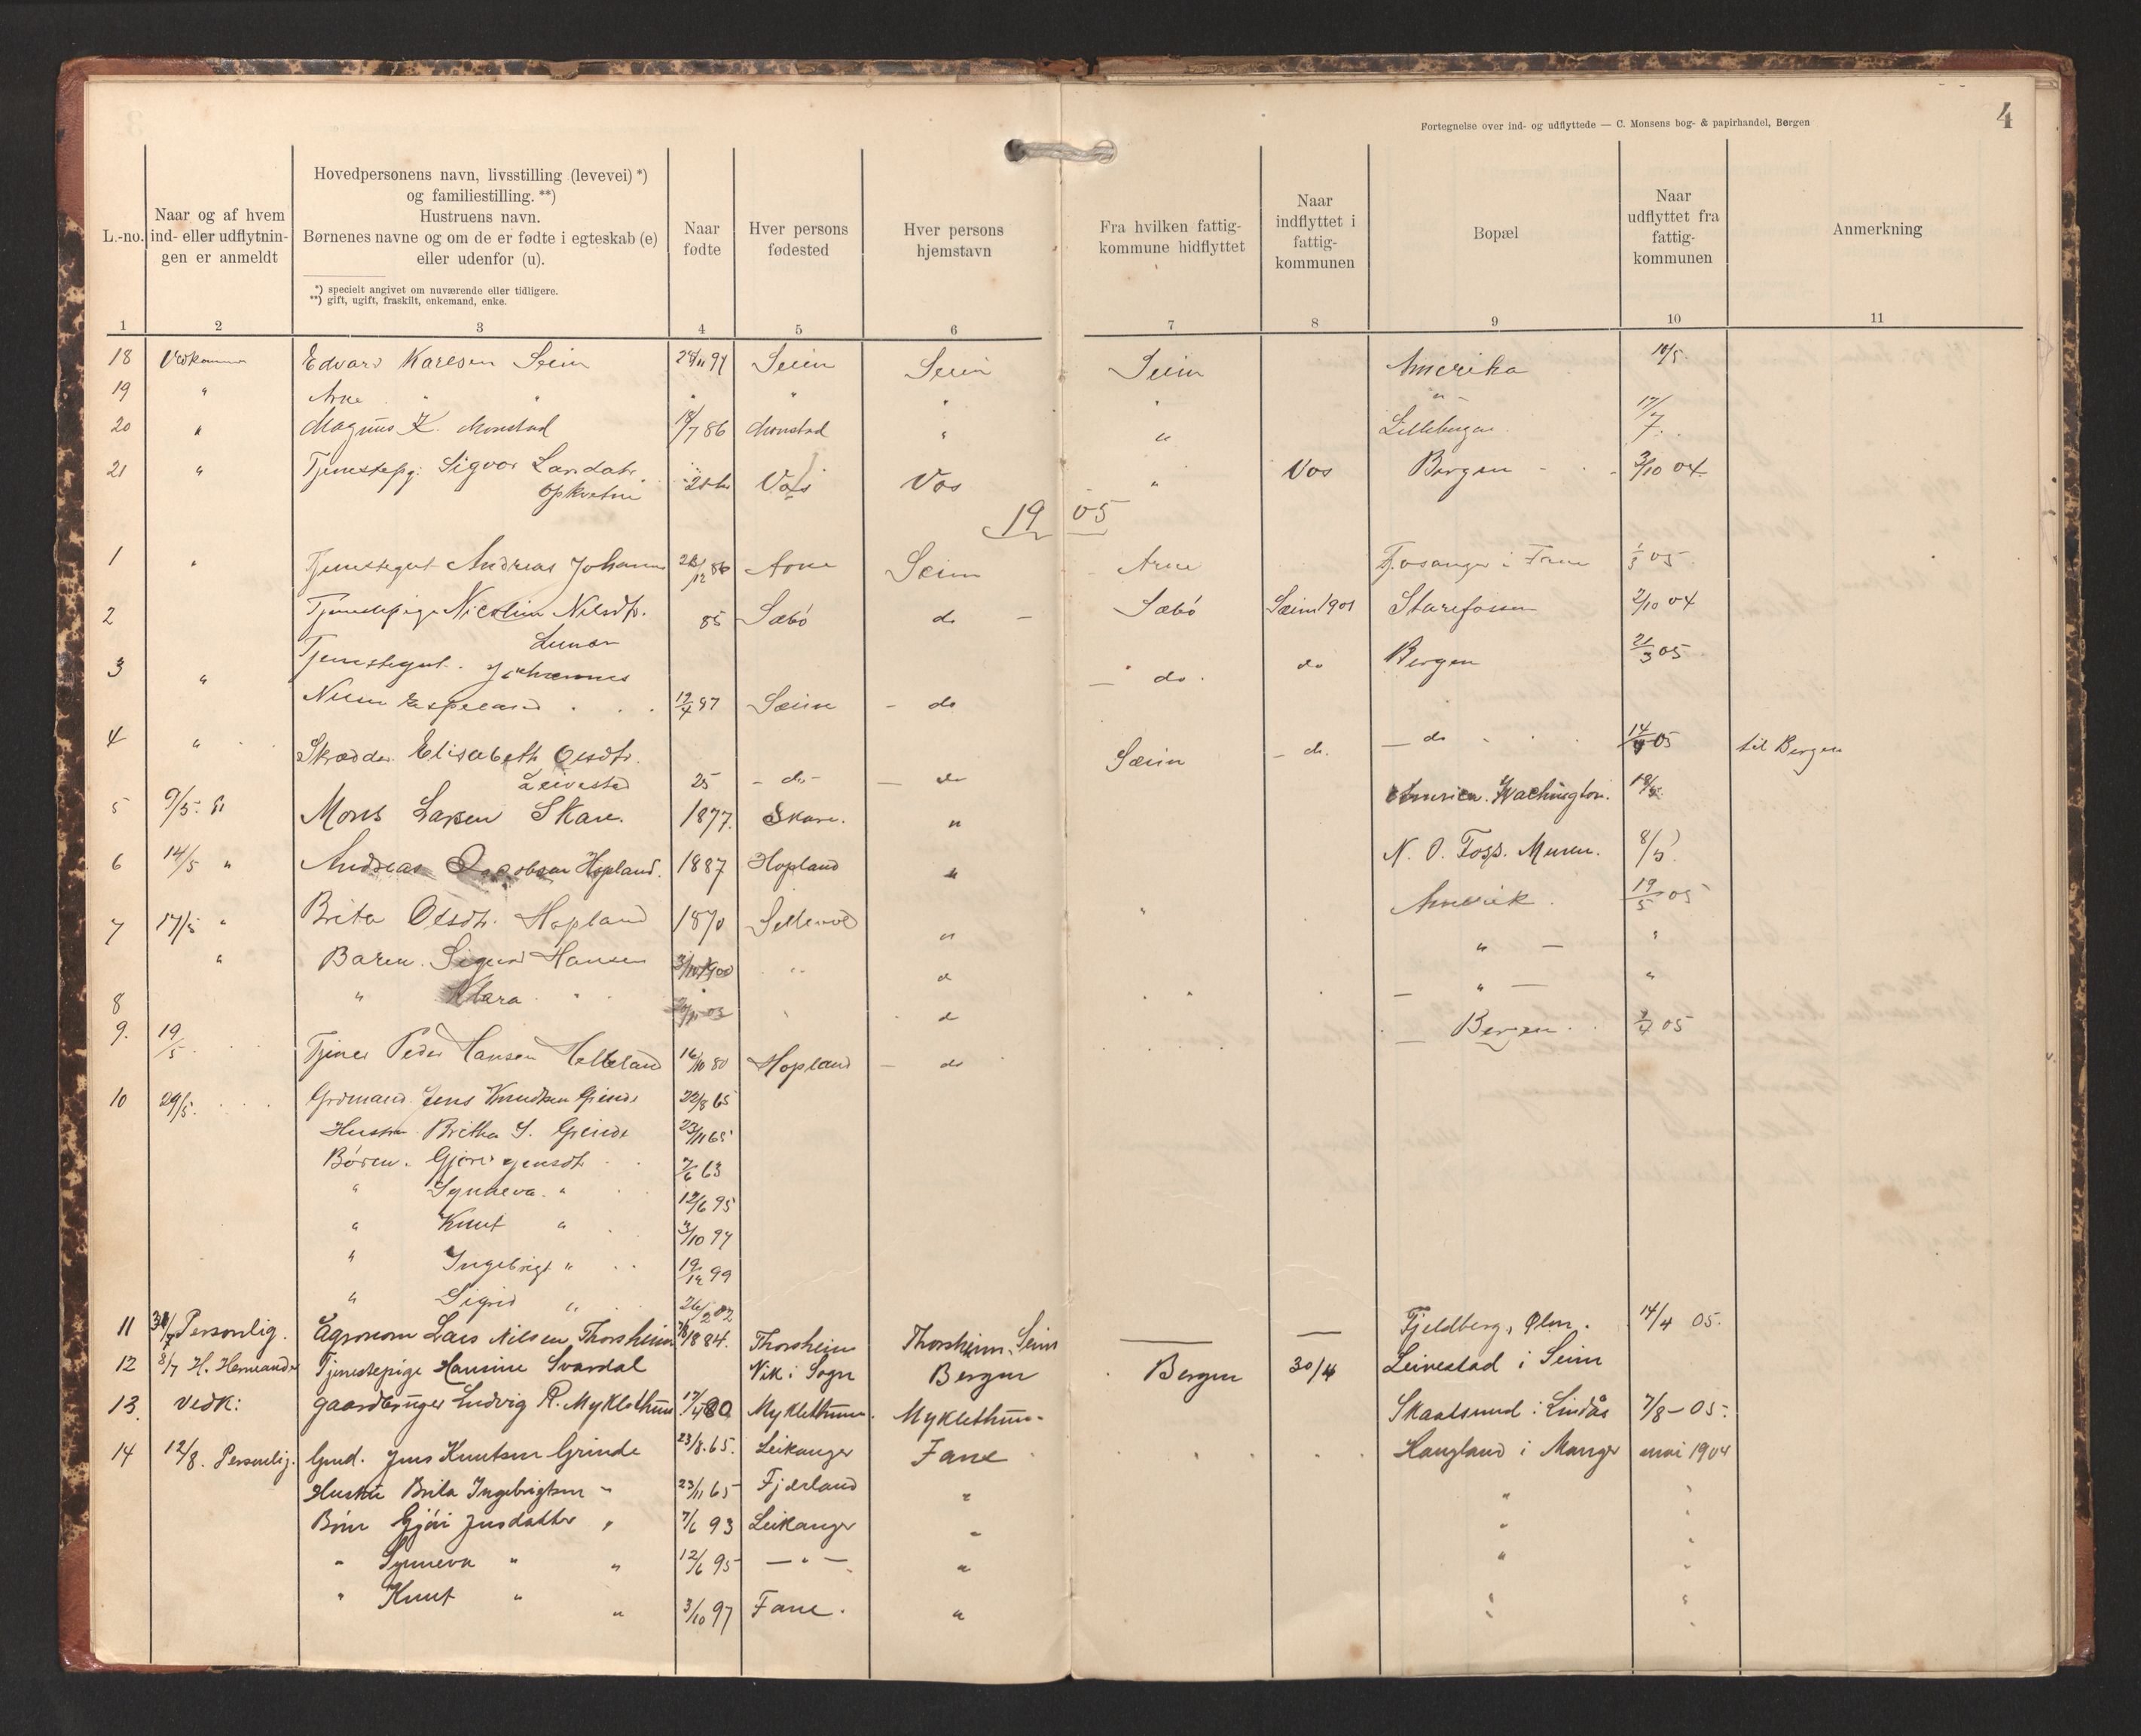 4
Fortegnelse over ind- og udflyttede — C. Monsens bog- & papirhandel, Bergen
L.-no.
Naar og af hvem
ind- eller udflytnin-
gen er anmeldt
Hovedpersonens navn, livsstilling (levevei) *)
og familiestilling. **)
Hustruens navn.
Børnenes navne og om de er fødte i egteskab (e)
eller udenfor (u).
*) specielt angivet om nuværende eller tidligere.
**) gift, ugift, fraskilt, enkemand, enke.
Naar
fødte
Hver persons
fødested
Hver persons
hjemstavn
Fra hvilken fattig-
kommune hidflyttet
Naar
indflyttet i
fattig-
kommunen
Bopæl
Naar
udflyttet fra
fattig-
kommunen
Anmerkning
1 2 3 4 5 6 7 8 9 10 11
18 Edvard Karlsen Seim Seim Seim Seim Amerika 10/5.
19 " Arne " " " " " " - " -
20 " Magnus K. Monstad 18/7 86 Monstad " " 17/7.
21 " Tjenestepg. Sigvor Vos Vos " Vos Bergen 3/10 04
Opkvetne
1905
1 " Tjenestegut Andreas Johann 86 Arne Seim Arne i Fane 05
2 Tjenestepige Nicoline Nilsdtr. 85 Sæbö do Sæbö Seim 1901 Storefossen 2/10 04
3 " Tjenestegut. Johannes do. do Bergen 21/3 05
Nilsen Espeland 19/4 87 Sæim do
4 " Elisabeth Olsdtr. Sæim do. do 05 til Bergen
Leivestad 25 - do - do
5 9/5. Mons Larsen Skare. 1877. Skare. " Washington.
6 14/5 " Andreas Hopland. 1887 Hopland " N. O. Foss. 8/5.
7 17/5 " Brita Olsdtr. Hopland 1870 " " Amerik. 19/5 05
" Barn. Sigurd Hansen 1900 " " " "
8 " Klara " " " "
9. 19/5 Tjener Peder Hansen Helleland 16/10 80 Hopland do Bergen 05
10 29/5. Grdmand. Jens Knudsen Grinde 22/8 65
Hustru Britha I. Grinde 23/11 65
Børen. Gjøri Jensdtr 7/6 63
" Synneva " 12/6 95
" Knut " 3/10 97
" Ingebrigt " 19/12 99
" Sigrid "
11 Personlig. Agronom Lars Nilsen Thorsheim 1884. Thorsheim Thorsheim, Seim — — Fjeldberg, Ølen. 14/4 05.
12 8/7 Tjenestepige Hansine Svardal Vik i Sogn Bergen Bergen 30/4 Leirestad i Seim
13. Vedk: Gaardbruger Ludvig R. Myklethun 17/4 80 Myklethun. Myklethun. Skaalsund i Lindås 7/8 - 05.
14 12/8. Personlig. Gmd. Jens Knutsen Grinde 23/8. 65. Leikanger Fane Haugland i Manger mai 1904
Hustru Brita Ingebrigtsen " 23/11 65 Fjerland " " "
Børn Gjøri Jensdatter " 7/6 93 Leikanger " " "
" Synneva " " 12/6 95 — " — " " "
" Knut " " 3/10 97 Fane. " " "